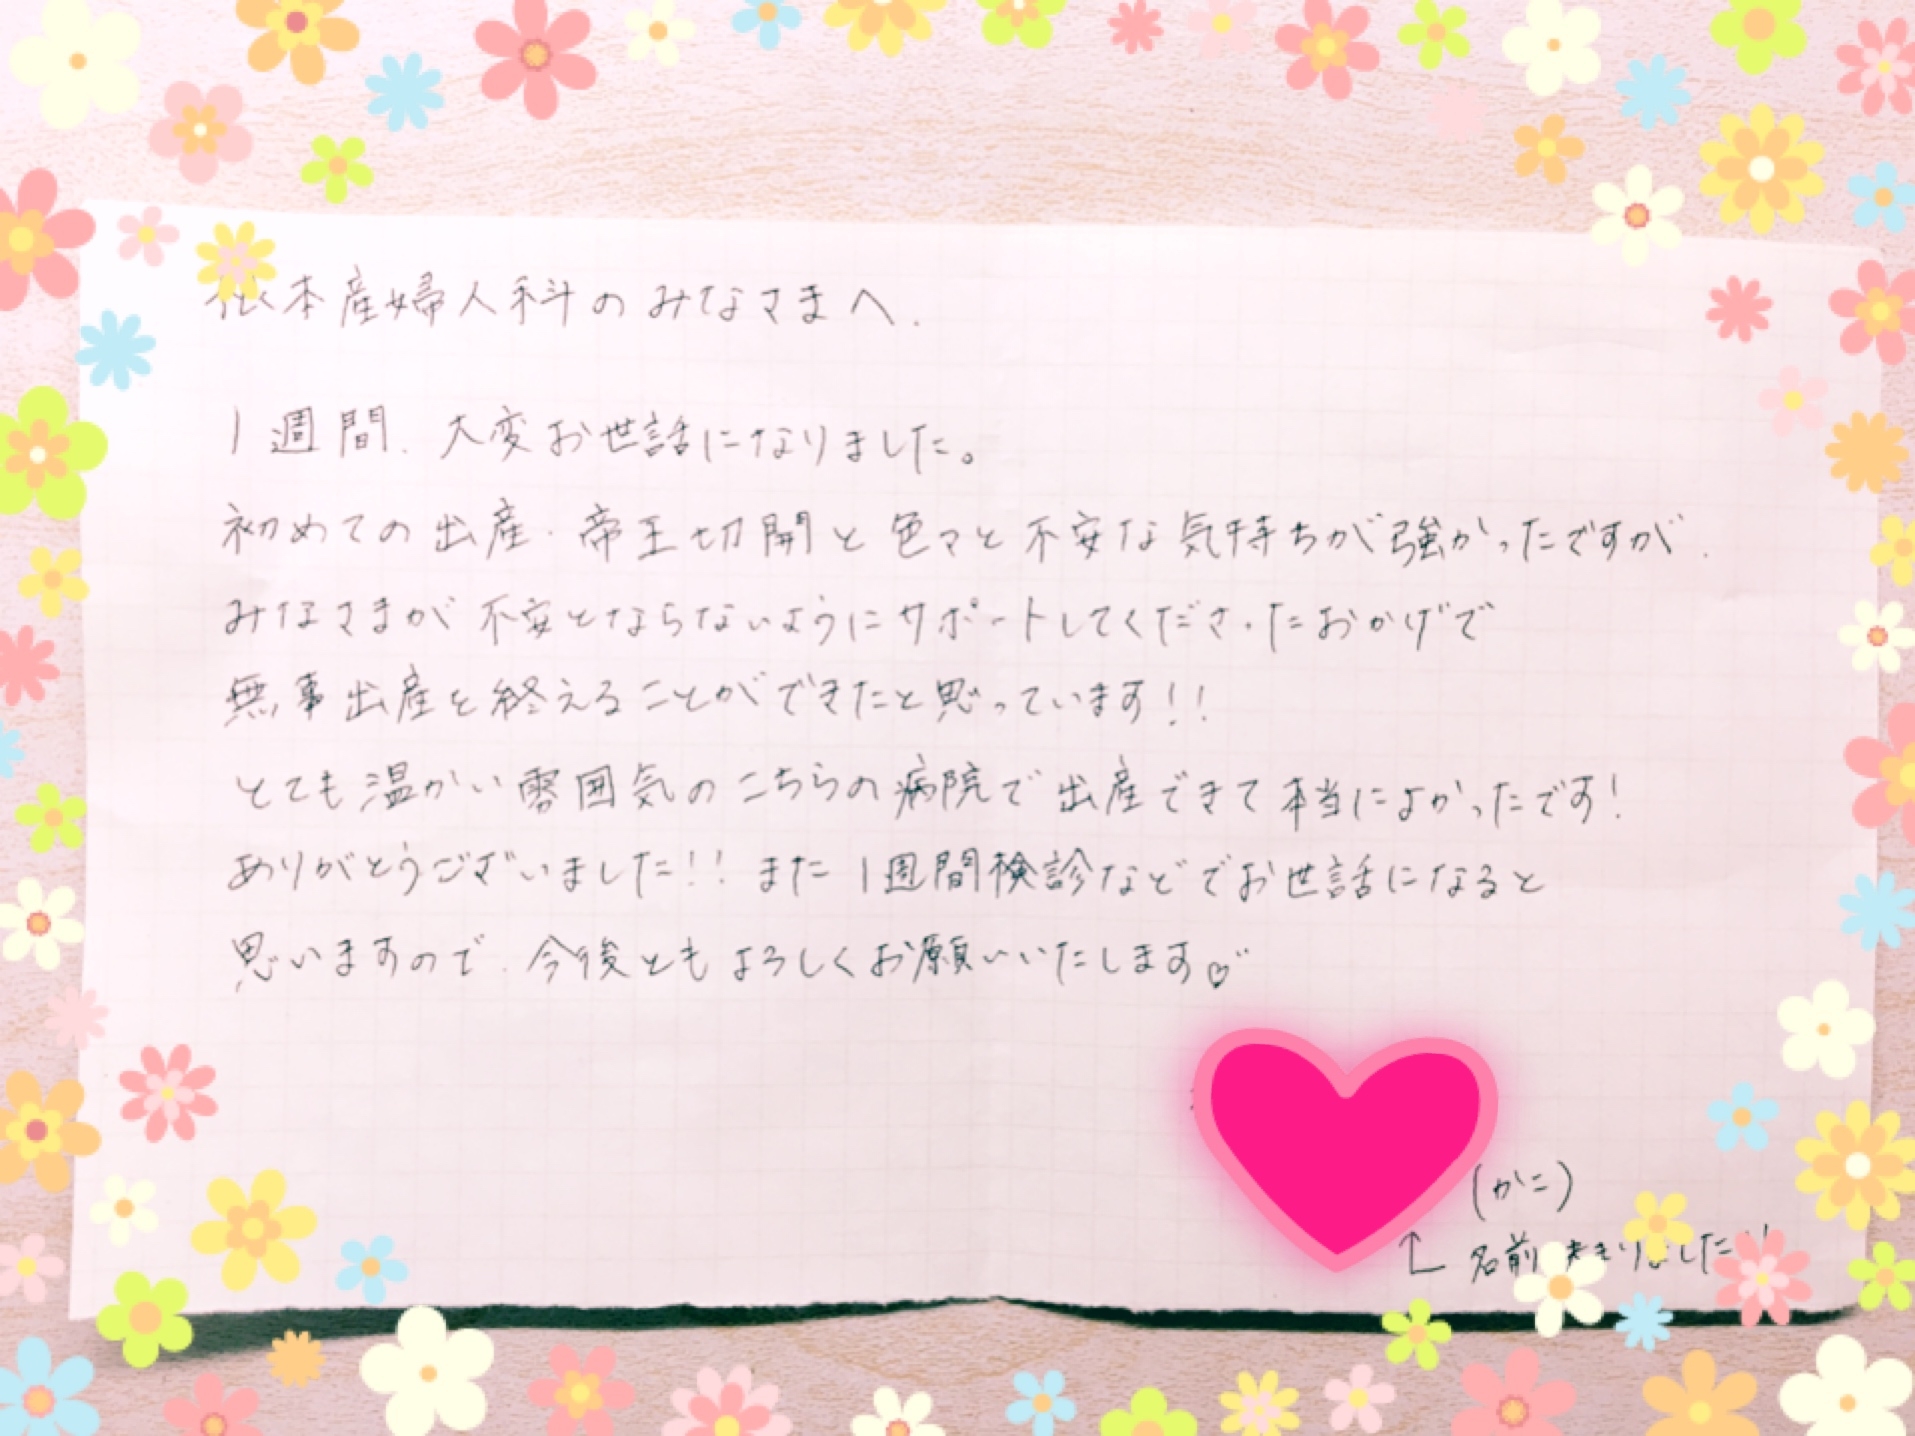 松本産婦人科のみなさまへ.
1週間、大変お世話になりました。
初めての出産・帝王切開と色々と不安な気持ちが強かったですが、
みなさまが不安とならないようにサポートしてくださったおかげで
無事出産を終えることができたと思っています!!
とても温かい雰囲気のこちらの病院で出産できて本当によかったです!
ありがとうございました!! また1週間検診などでお世話になると
思いますので、今後ともよろしくお願いいたします♡
(かこ)
名前 決まりました!!